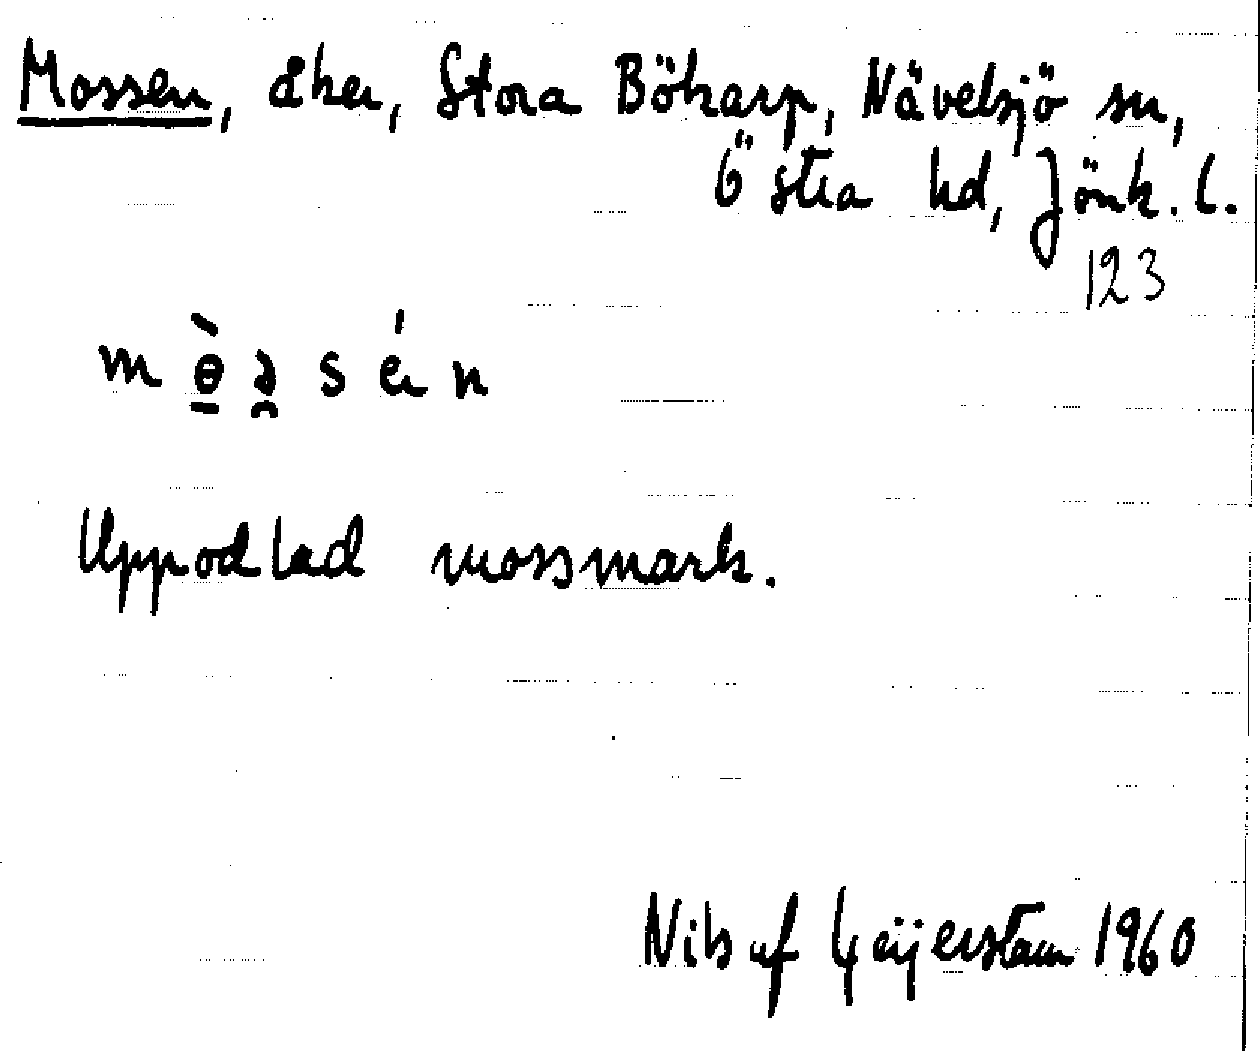 Mossen, åker, Stora Bökarp, Nävelsjö sn,
Östra hd, Jönk. l.
123
m ɵ̠̀ ə̯ s é n
Uppodlad mossmark.
Nils af Geijerstam 1960